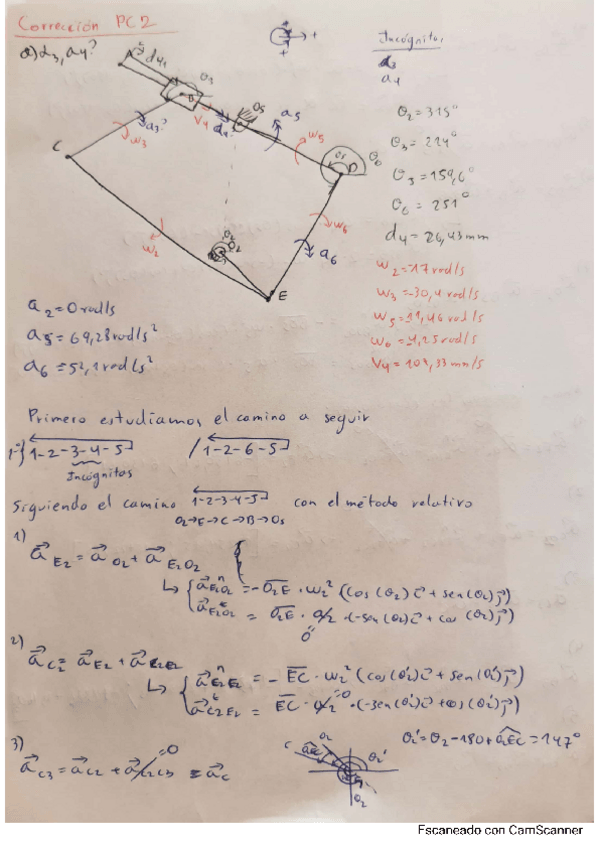 Corrección PC2
a) α3, a4?
Incógnitas
α3
a4
θ2 = 315°
θ3 = 224°
θ5 = 159,6°
θ6 = 251°
d4 = 26,43 mm
ω2 = -17 rad/s
ω3 = -30,4 rad/s
ω5 = 31,46 rad/s
V4 = 104,33 mm/s
C
E
D
ω3
ω2
ω5
ω6
α3?
α5
α6
V4
α2 = 0 rad/s
α5 = 69,28 rad/s²
α6 = 52,1 rad/s²
Primero estudiamos el camino a seguir
1-2-3-4-5 / 1-2-6-5
Incógnitas
Siguiendo el camino 1-2-3-4-5 con el método relativo
O2→E→C→B→O5
1)
a⃗E2 = a⃗O2 + a⃗E2O2
↳ { a⃗ⁿE2O2 = -O2E · ω2² (cos(θ2)i⃗ + sen(θ2)j⃗)
a⃗ᵗE2O2 = O2E · α2 · (-sen(θ2)i⃗ + cos(θ2)j⃗)
0
2)
a⃗C2 = a⃗E2 + a⃗C2E2
↳ { a⃗ⁿC2E2 = -EC · ω2² (cos(θ2')i⃗ + sen(θ2')j⃗)
a⃗ᵗC2E2 = EC · α2 =0 · (-sen(θ2')i⃗ + cos(θ2')j⃗)
3)
a⃗C3 = a⃗C2 + a⃗C2C3 =0 = a⃗C
θ2' = θ2 - 180 + O2EC = 147°
Escaneado con CamScanner